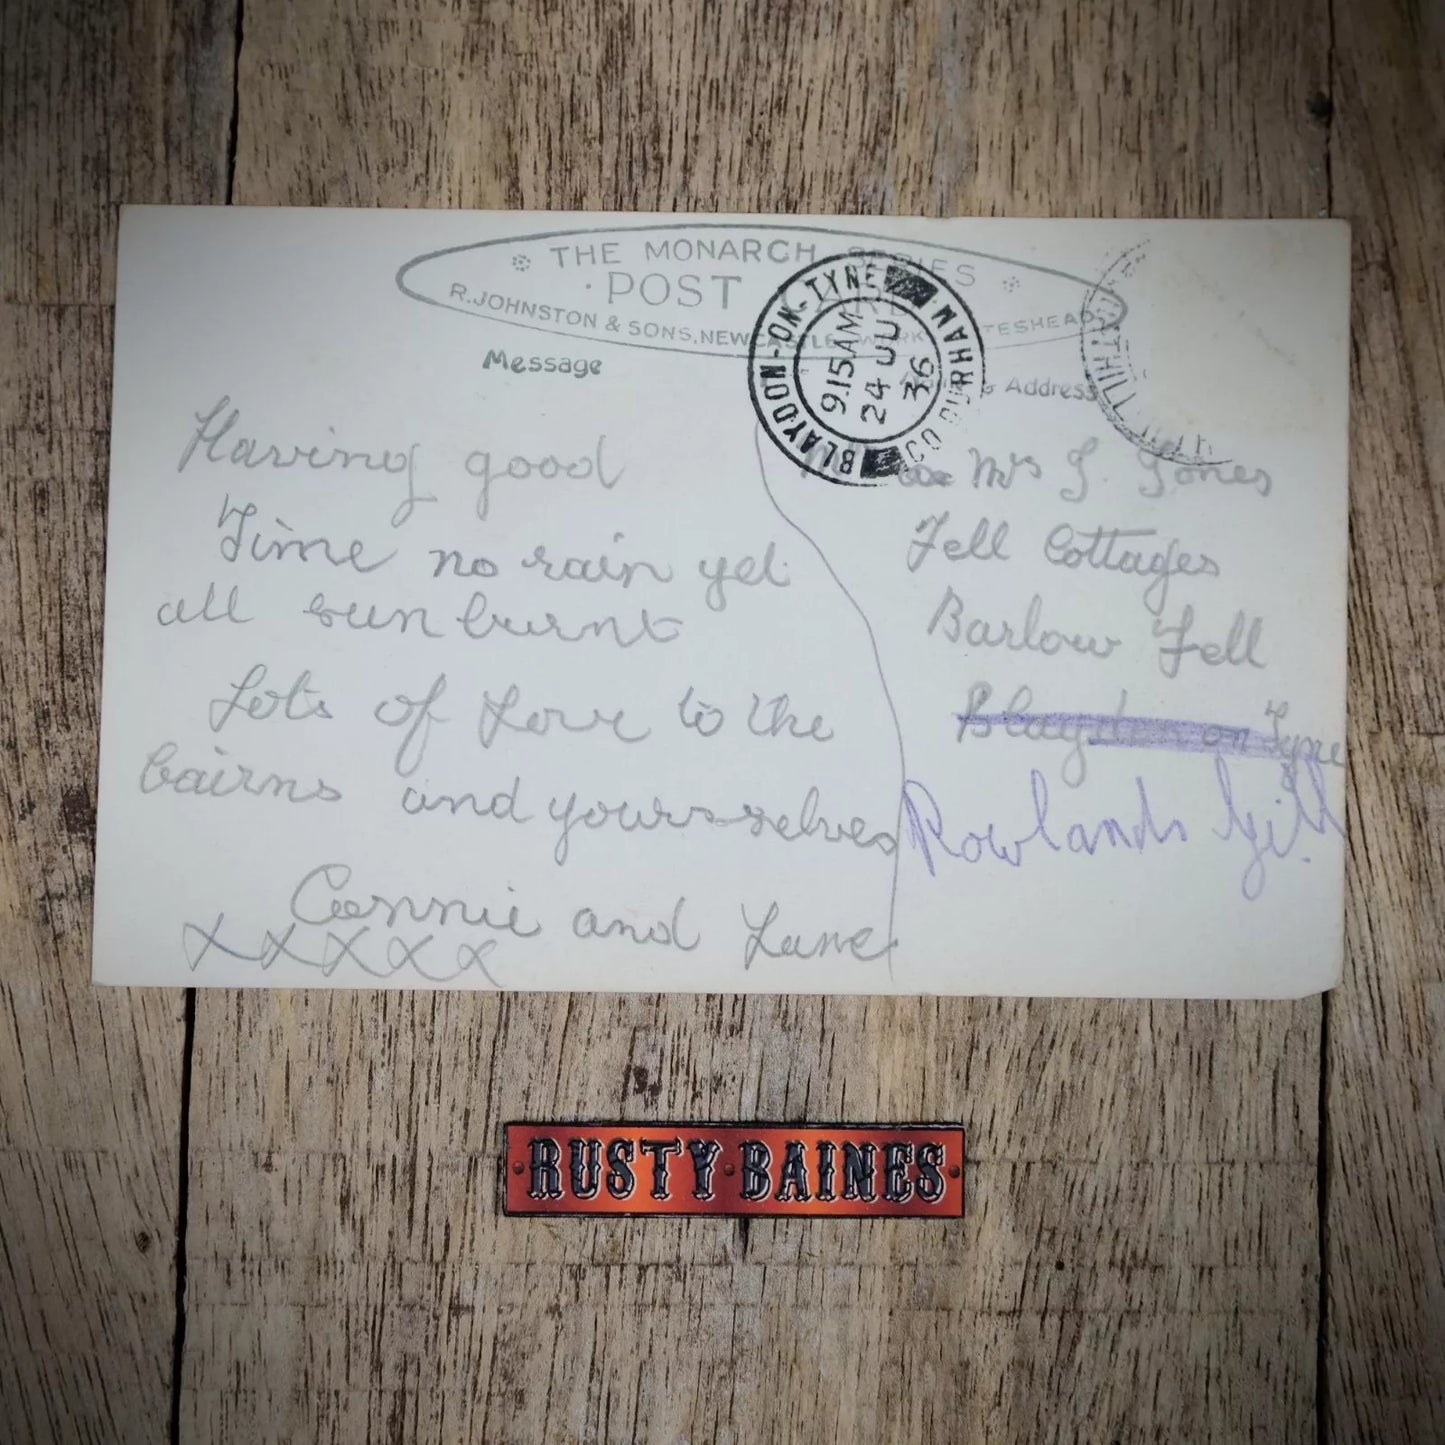 THE MONARCH SERIES
POST CARD
R. JOHNSTON & SONS, NEWCASTLE GATESHEAD
Message
Address
BLAYDON-ON-TYNE CO DURHAM
9.15AM
24 JU
36
Having good
Time no rain yet
all sun burnt
Lots of Love to the
bairns and yoursselves
Connie and
XXXXX
Mrs J. Jones
Fell Cottages
Barlow Fell
Blaydon on Tyne
Rowlands Gill
RUSTY BAINES